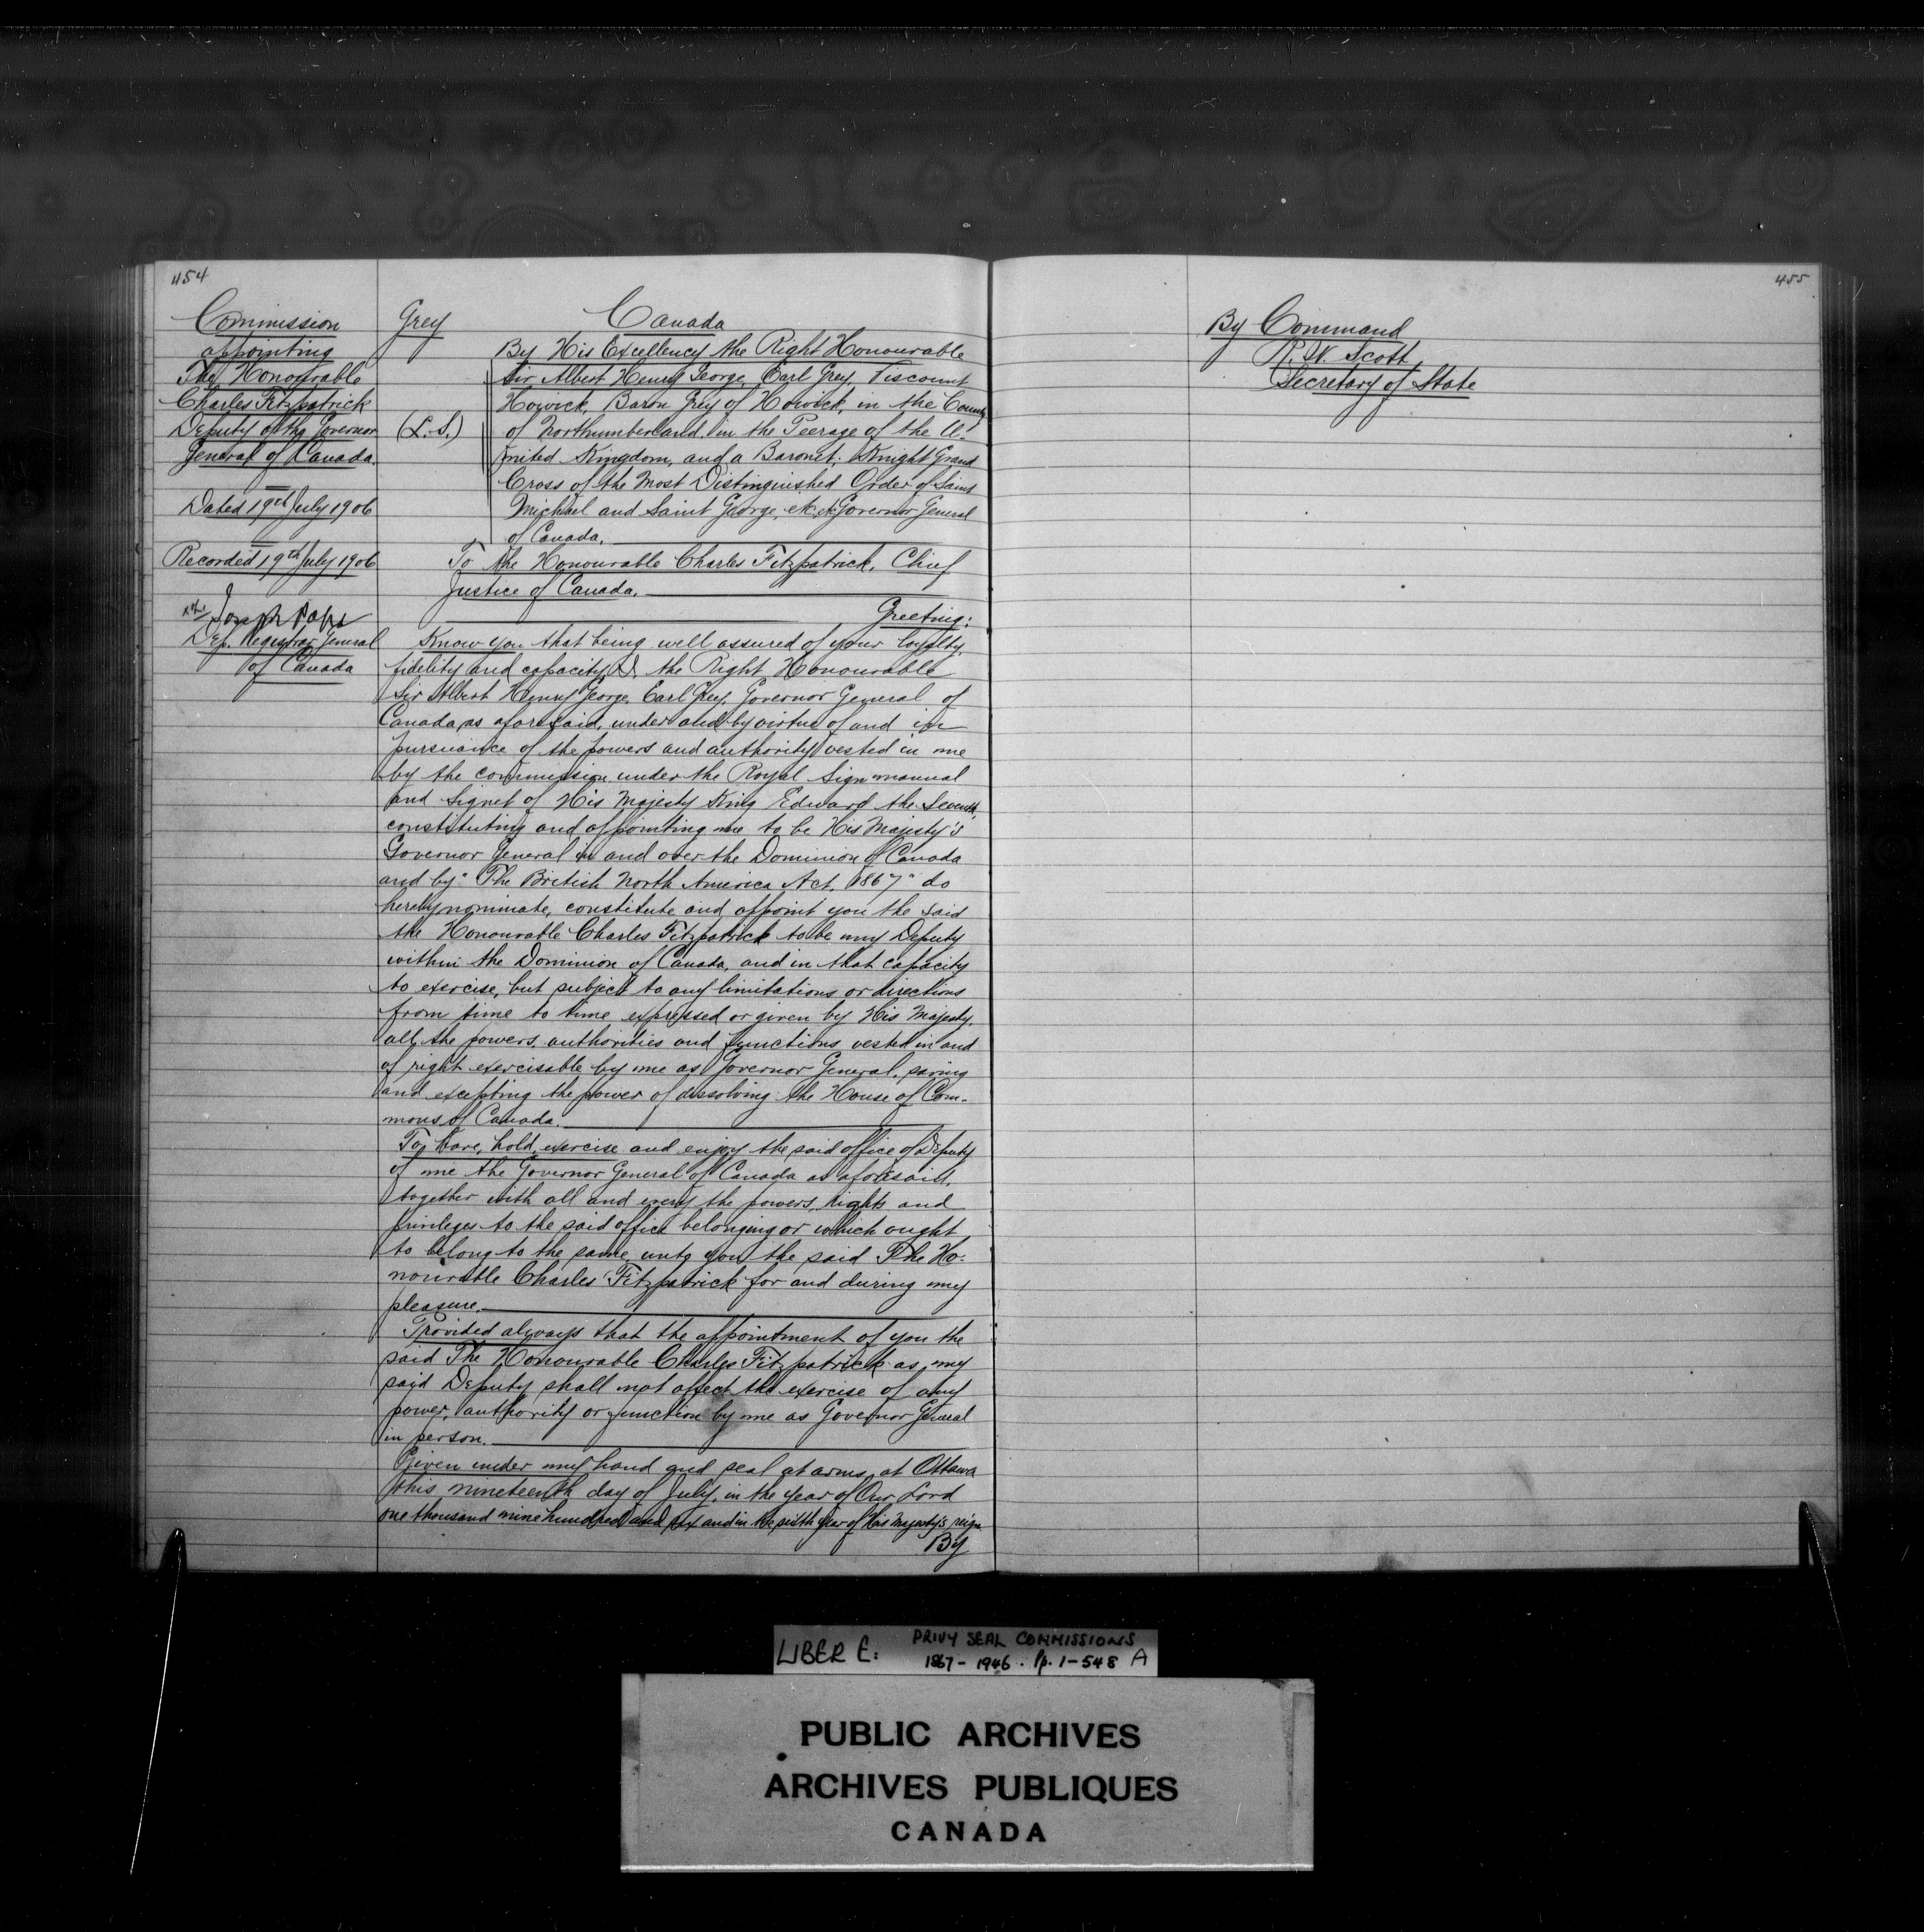 454
Commission
appointing
The Honourable
Charles Fitzpatrick
Deputy of the Governor
General of Canada.
Dated 19th July 1906
Recorded 19th July 1906
Joseph Pope
Dep. Registrar General
of Canada
Grey
(L.S.)
Canada
By His Excellency the Right Honourable
Sir Albert Henry George, Earl Grey, Viscount
Howick, Baron Grey of Howick, in the County
of Northumberland, in the Peerage of the U-
nited Kingdom, and a Baronet; Knight Grand
Cross of the Most Distinguished Order of Saint
Michael and Saint George, etc. etc. Governor General
of Canada.
To the Honourable Charles Fitzpatrick, Chief
Justice of Canada.
Greeting:
Know you that being well assured of your loyalty,
fidelity and capacity, I, the Right Honourable
Sir Albert Henry George, Earl Grey, Governor General of
Canada, as aforesaid, under and by virtue of and in
pursuance of the powers and authority vested in me
by the commission under the Royal Sign manual
and Signet of His Majesty King Edward the Seventh,
constituting and appointing me to be His Majesty's
Governor General in and over the Dominion of Canada
and by "The British North America Act, 1867" do
hereby nominate, constitute and appoint you the said
the Honourable Charles Fitzpatrick to be my Deputy
within the Dominion of Canada, and in that capacity
to exercise, but subject to any limitations or directions
from time to time expressed or given by His Majesty,
all the powers, authorities and functions vested in and
of right exercisable by me as Governor General, saving
and excepting the power of dissolving the House of Com-
mons of Canada.
To have, hold, exercise and enjoy the said office of Deputy
of me the Governor General of Canada as aforesaid,
together with all and every the powers, rights and
privileges to the said office belonging or which ought
to belong to the same unto you the said The Ho-
nourable Charles Fitzpatrick for and during my
pleasure.
Provided always that the appointment of you the
said The Honourable Charles Fitzpatrick as my
said Deputy shall not affect the exercise of any
power, authority or function by me as Governor General
in person.
Given under my hand and seal at arms, at Ottawa
this nineteenth day of July, in the year of Our Lord
one thousand nine hundred and six and in the sixth year of His Majesty's reign.
By
455
By Command
R. W. Scott
Secretary of State
LIBER E: PRIVY SEAL COMMISSIONS
1867 - 1946. Pp. 1-548 A
PUBLIC ARCHIVES
ARCHIVES PUBLIQUES
CANADA